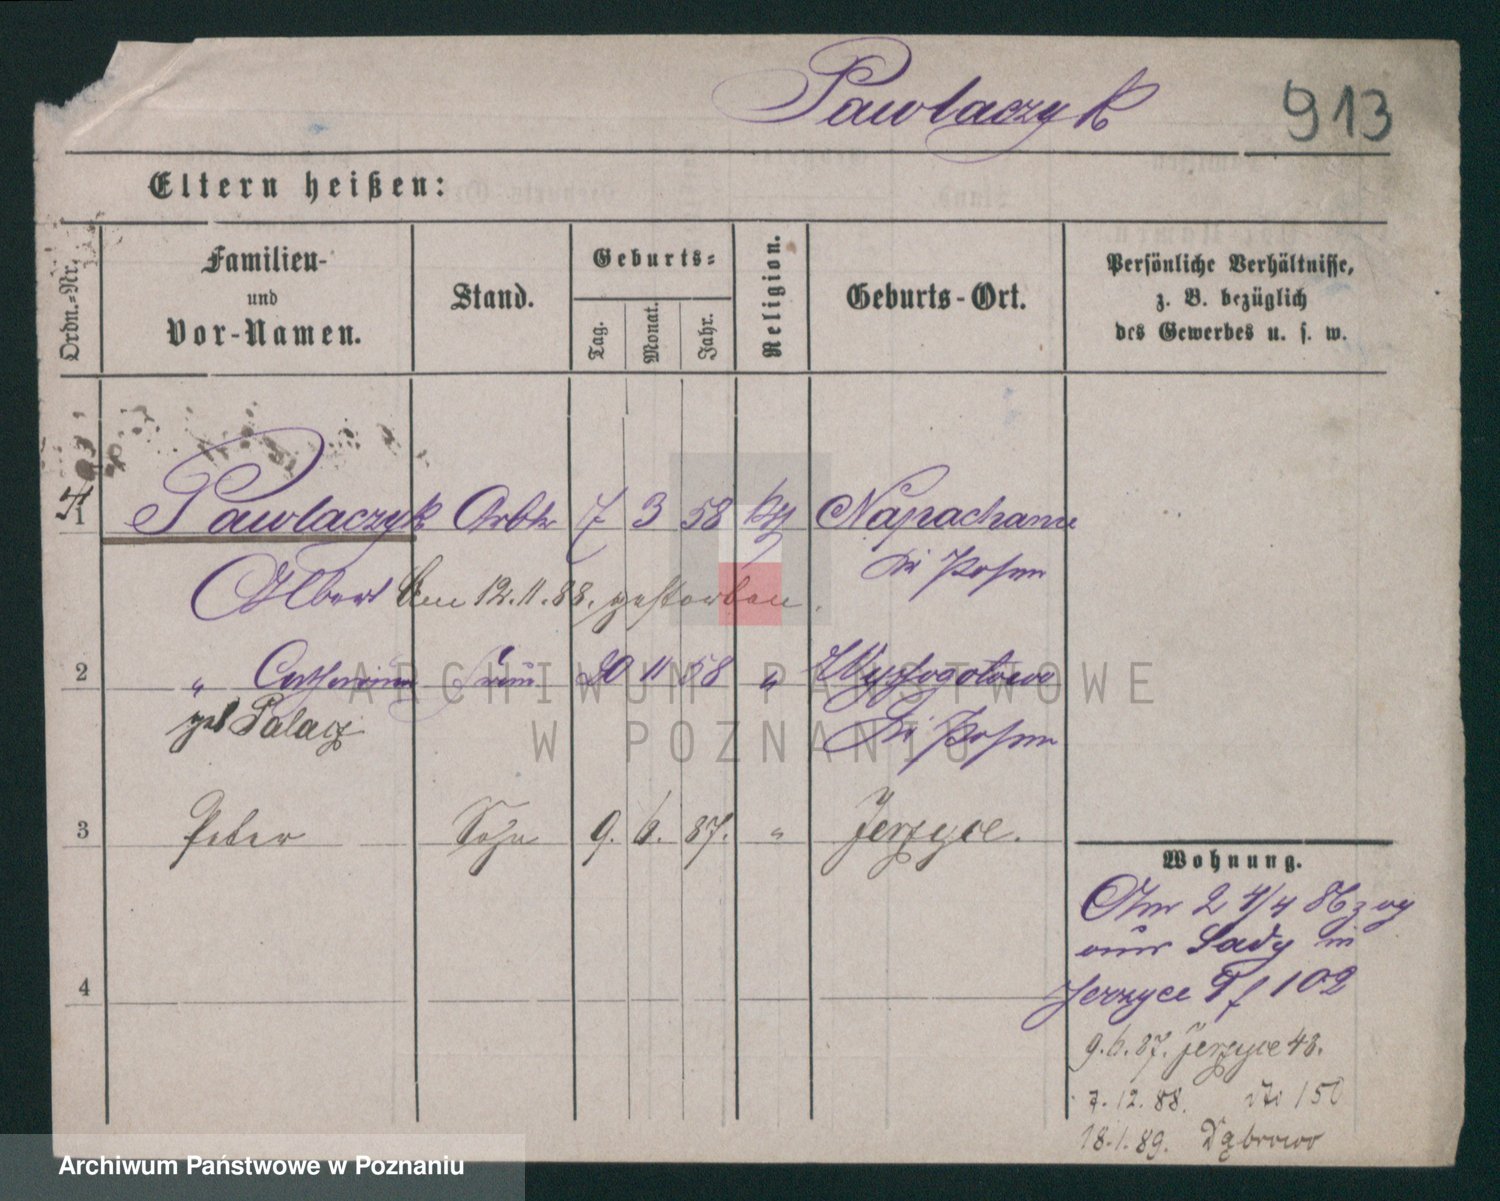 Pawlaczyk 913
Eltern heißen:
Ordn.-Nr. Familien- und Vor-Namen. Stand. Geburts- Tag. Monat. Jahr. Religion. Geburts-Ort. Persönliche Verhältnisse, z. B. bezüglich des Gewerbes u. s. w.
1 Pawlaczyk Arbtr 7 3 58 kth Napachanie
Kr Posen
Albert am 12.11.88. gestorben.
2 " Catharina Frau 20 11 58 " Wysogotowo
geb Palacz Kr Posen
3 Peter Sohn 9. 6. 87. " Jerzyce.
Wohnung.
Am 2 4/4 86 zog
nur Sady in
4 Jerzyce 102
9.6.87. Jerzyce 43.
7.12.88. 150
18.1.89. Dąbrowo
ARCHIWUM PAŃSTWOWE
W POZNANIU
Archiwum Państwowe w Poznaniu